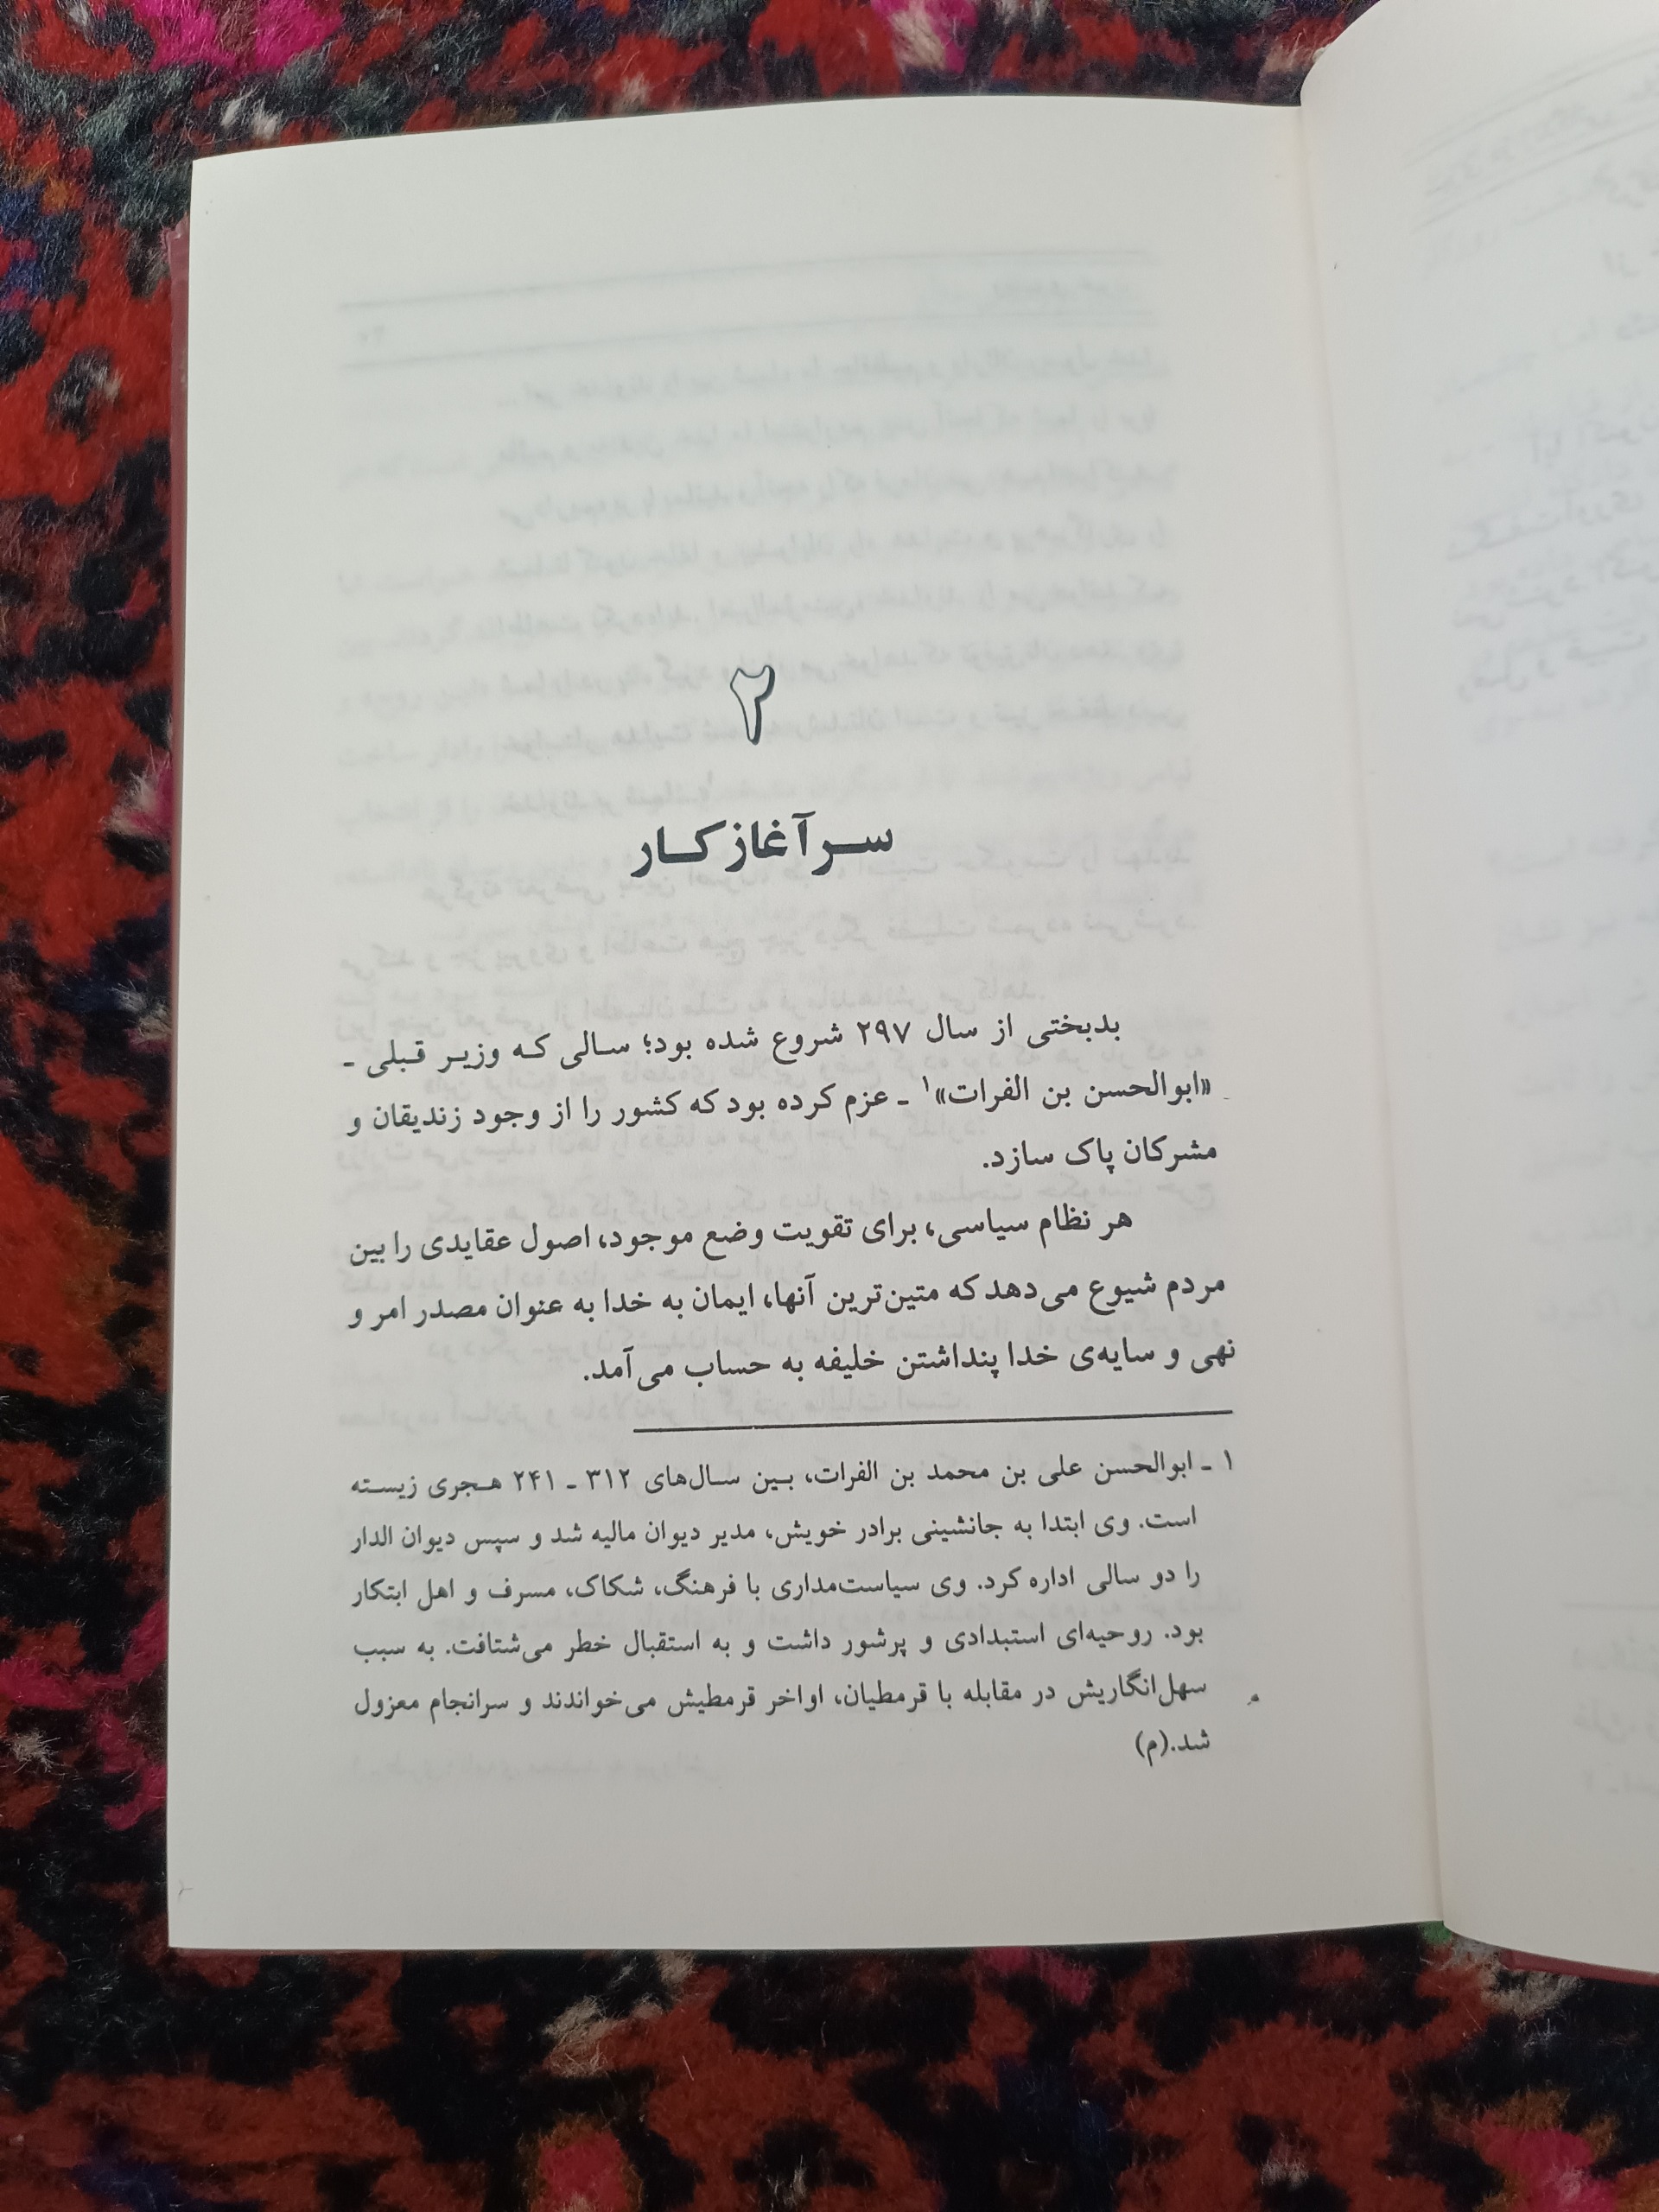 ۲
سرآغاز کار
بدبختی از سال ۲۹۷ شروع شده بود؛ سالی که وزیر قبلی ـ
«ابوالحسن بن الفرات»۱ ـ عزم کرده بود که کشور را از وجود زندیقان و
مشرکان پاک سازد.
هر نظام سیاسی، برای تقویت وضع موجود، اصول عقایدی را بین
مردم شیوع می‌دهد که متین‌ترین آنها، ایمان به خدا به عنوان مصدر امر و
نهی و سایه‌ی خدا پنداشتن خلیفه به حساب می‌آمد.
۱ ـ ابوالحسن علی بن محمد بن الفرات، بین سال‌های ۳۱۲ ـ ۲۴۱ هجری زیسته
است. وی ابتدا به جانشینی برادر خویش، مدیر دیوان مالیه شد و سپس دیوان الدار
را دو سالی اداره کرد. وی سیاست‌مداری با فرهنگ، شکاک، مسرف و اهل ابتکار
بود. روحیه‌ای استبدادی و پرشور داشت و به استقبال خطر می‌شتافت. به سبب
سهل‌انگاریش در مقابله با قرمطیان، اواخر قرمطیش می‌خواندند و سرانجام معزول
شد.(م)